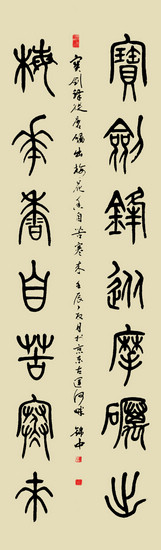 寶劍鋒從摩礪出
梅華香自苦寒來
寶劍鋒從磨礪出梅花香自苦寒來壬辰夏月於京東古運河畔錦中